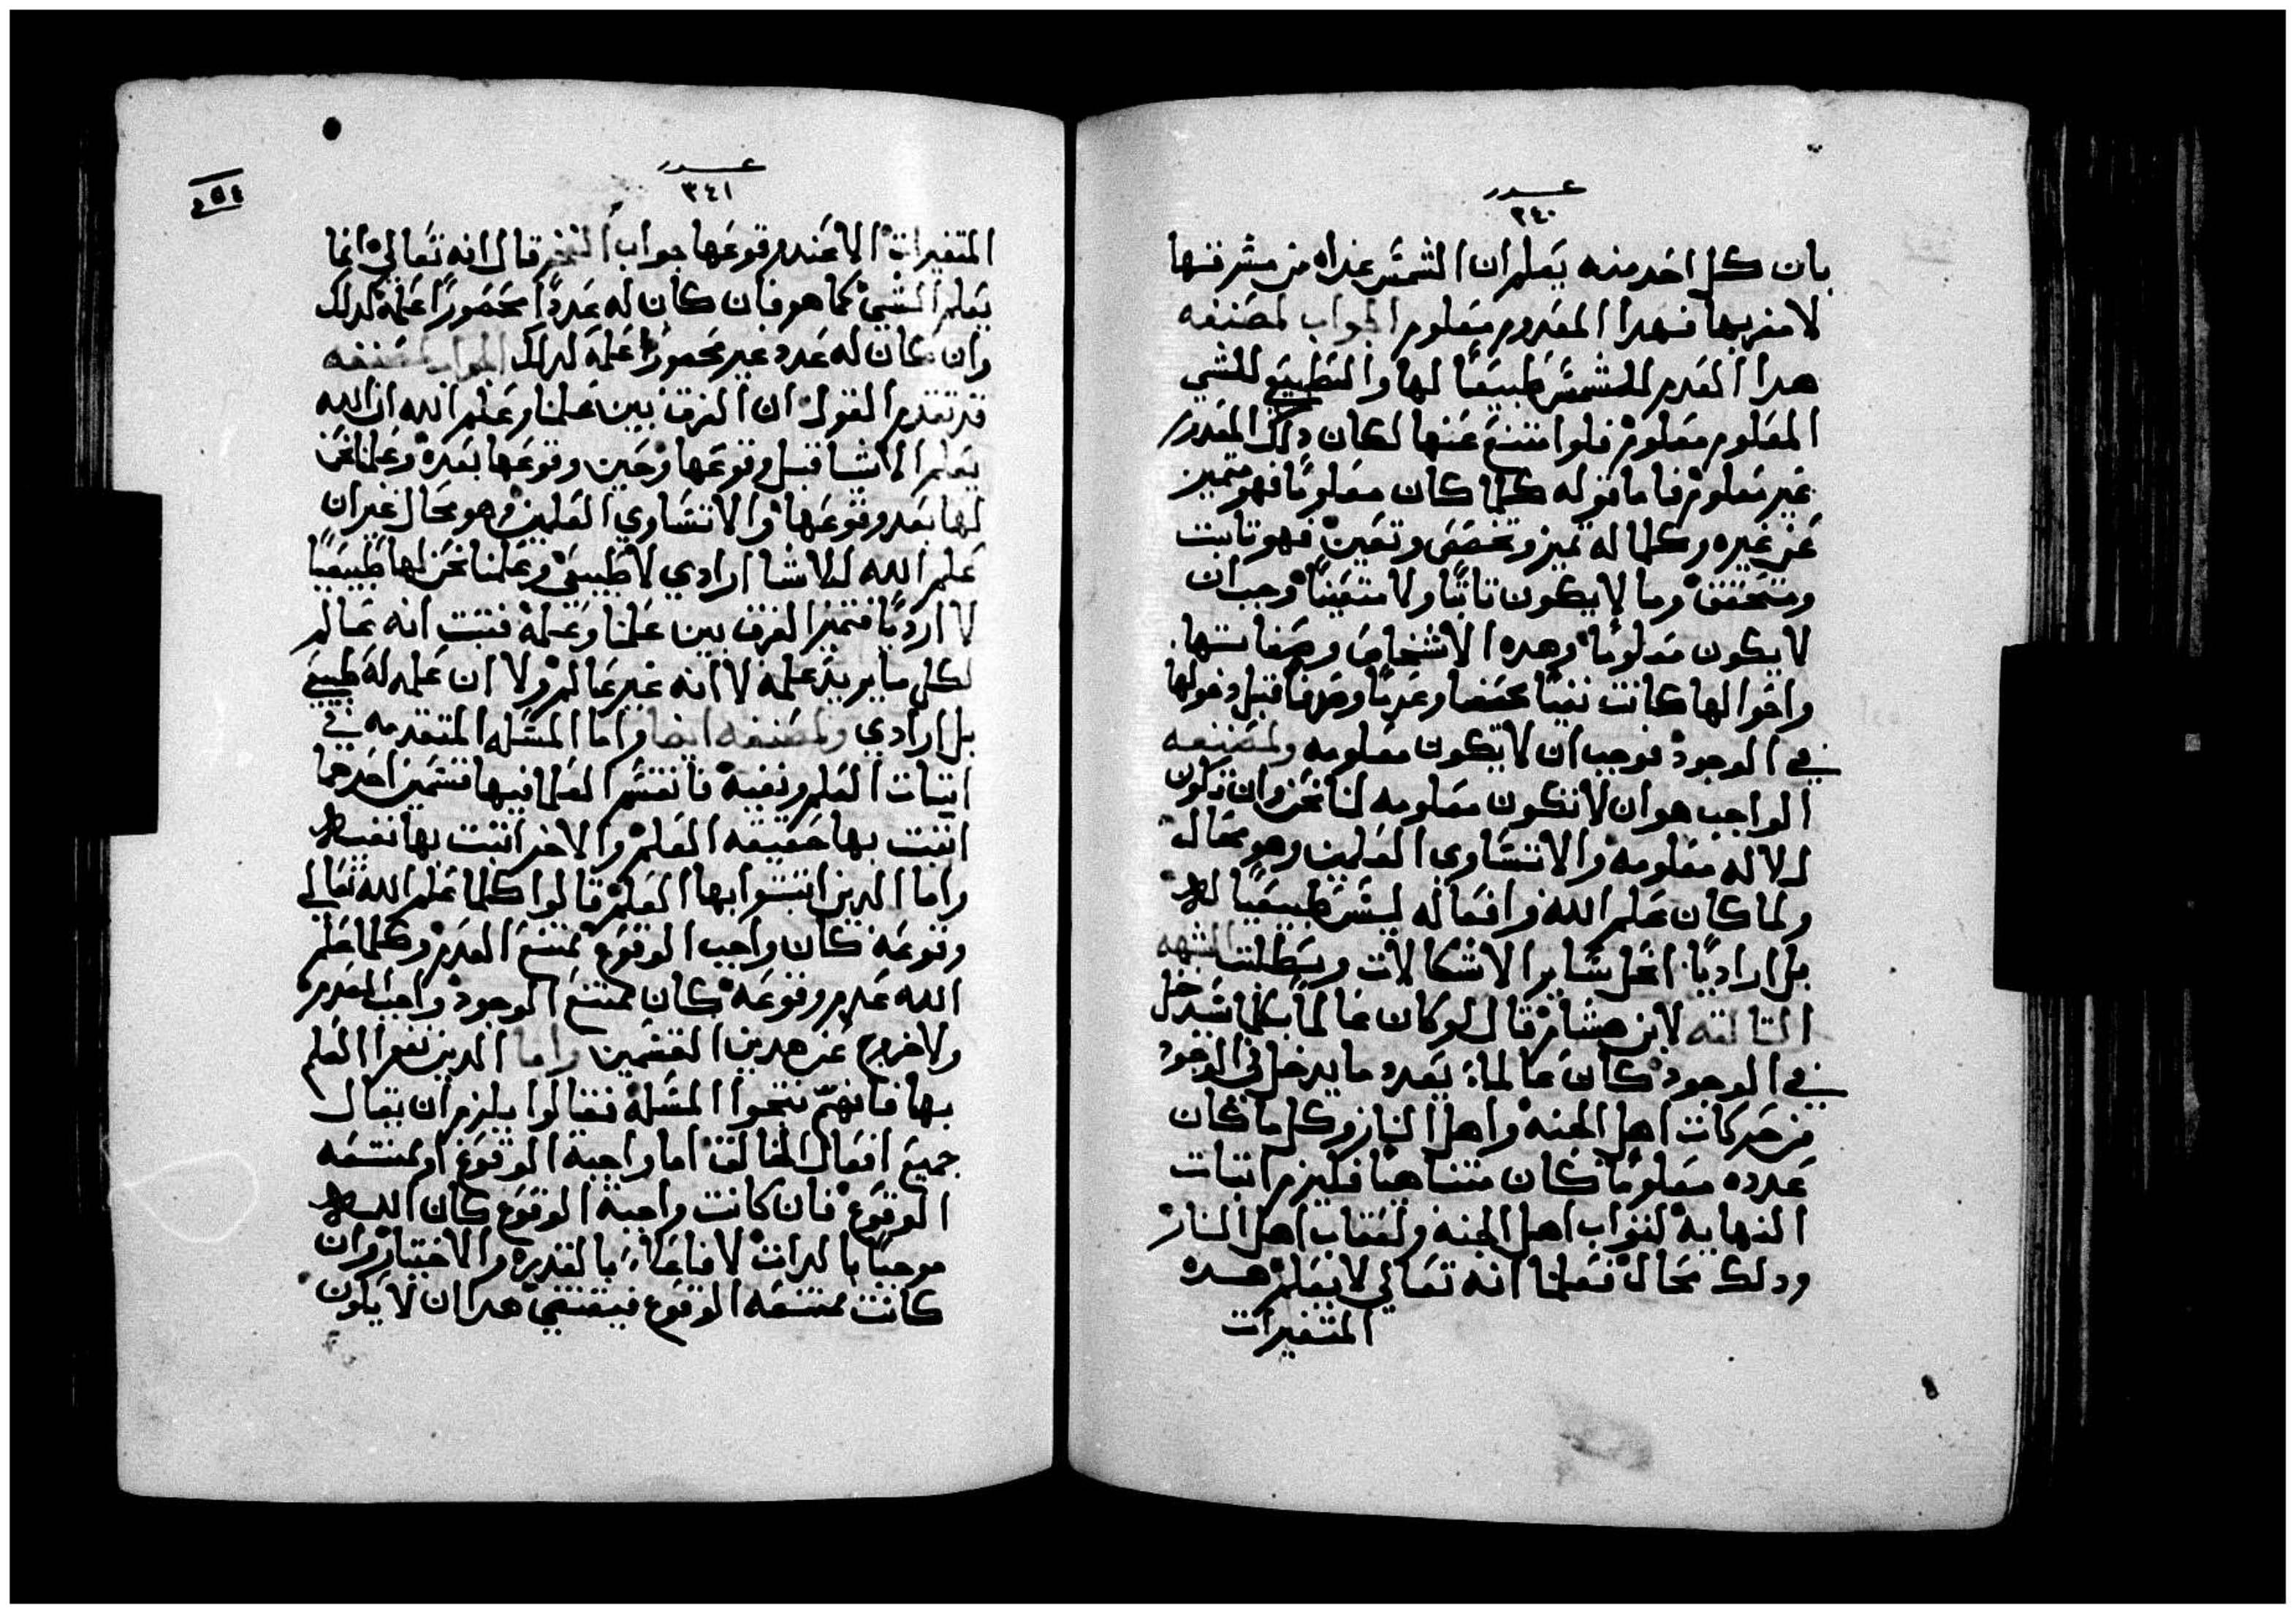 عدد
٣٤٠
بان كل احد منه يعلم ان الشمس غداه من مشرقها
لا مغربها فهدا المعدوم معلوم الجواب لمصنفه
هدا العدم للشمس طبيعيًا لها والتطبيع للشي
المعلوم معلوم فلوا متنع عنها لكان دلك المعدوم
غير معلوم فاما قوله كلما كان معلومًا فهو متميز
عن غيره وكلما له تميز وتخصص وتعين فهو تابت
ومتحقق وما لا يكون تابتًا ولا متعينًا وجب ان
لا يكون معلومًا وهده الاشخاص وصفاتها
واحوالها كانت نفيًا محضا وعدمًا وصرفا قبل دخولها
في الوجود فوجب ان لا يكون معلومه ولمصنفه
الواجب هو ان لا تكون معلومه لنا نحن وان تكون
لالاه معلومه والا تساوي العلمين وهو محال
ولما كان علم الله وافعاله ليس طبيعيًا له
بل اراديًا انحل ساير الاشكالات وبطلت الشبهه
التالته لابن هشام قال لو كان عالمًا بكلما سيدخل
في الوجود كان عالمًا بعدد ما يدخل في الوجود
من حركات اهل الجنه واهل النار وكل ما كان
عدده معلومًا كان متناهيا فليزم اتبات
النهايه لتواب اهل الجنه ولعقاب اهل النار
ودلك محال فعلمنا انه تعالي لا يعلم هده
المتغيرات
عدد
٣٤١
المتغيرات الا عند وقوعها جواب الفخر قال انه تعالي انما
يعلم الشي كما هو فان كان له عددًا محصورًا علمه كدلك
وان كان له عدد غير محصورًا علمه كدلك الجواب لمصنفه
قد تقدم القول ان الفرق بين علمنا وعلم الله ان الله
يعلم الاشيا قبل وقوعها وحين وقوعها بعده وعلمنا نحن
لها بعد وقوعها والا تساوي العلمين وهو محال غير ان
علم الله للاشيا ارادي لا طبيعي وعلمنا نحن لها طبيعيًا
لا اردًيا فتميز الفرق بين علمنا وعلمه فتبت انه عالم
لكل ما يريد علمه لا انه غير عالم ولا ان علمه له طبيعي
بل ارادي ولمصنفه ايضا واما المسله المتقدمه في
اتبات العلم ونفيه فانقسم العلما فيها قسمين احدهما
اتبت بها حقيقه العلم والاخر اتبت بها نفيه
واما الدين اتبتوا بها العلم قالوا كلما علم الله تعالي
وقوعه كان واجب الوقوع ممتنع العدم وكلما علم
الله عدم وقوعه كان ممتنع الوجود واجب العدم
ولا خروج عن هدين القسمين واما الدين نفوا العلم
بها فانهم نتجوا المسله فقالوا يلزم ان يقال
جميع افعال الخالق اما واجبة الوقوع او ممتنعه
الوقوع فان كانت واجبة الوقوع كان الله
موجبًا بالدات لا فاعلًا بالقدره والاختيار وان
كانت ممتنعه الوقوع فيقتضي هدا ان لا يكون